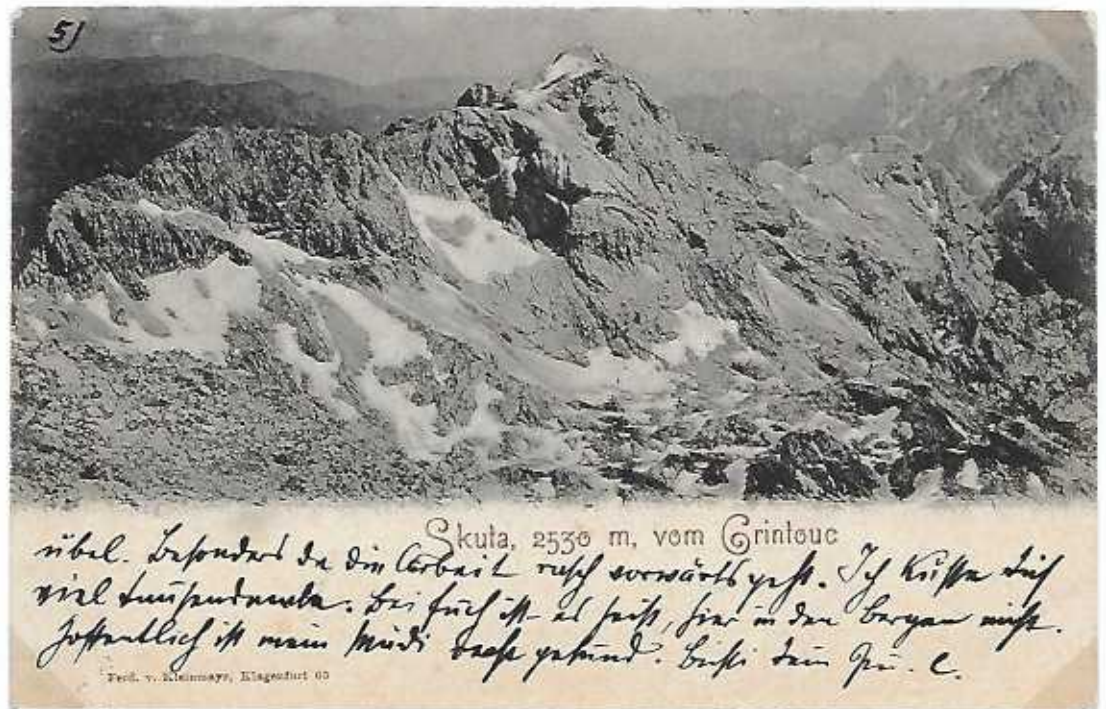 5)
Skuta, 2530 m, vom Grintouc
übel. Besonders da die Arbeit rasch vorwärts geht. Ich küsse Dich
viel tausendmale. Bei Euch ist es heiß, hier in den Bergen nicht.
Hoffentlich ist mein Mädi recht gesund. Bussi Dein
Ferd. v. Kleinmayr, Klagenfurt